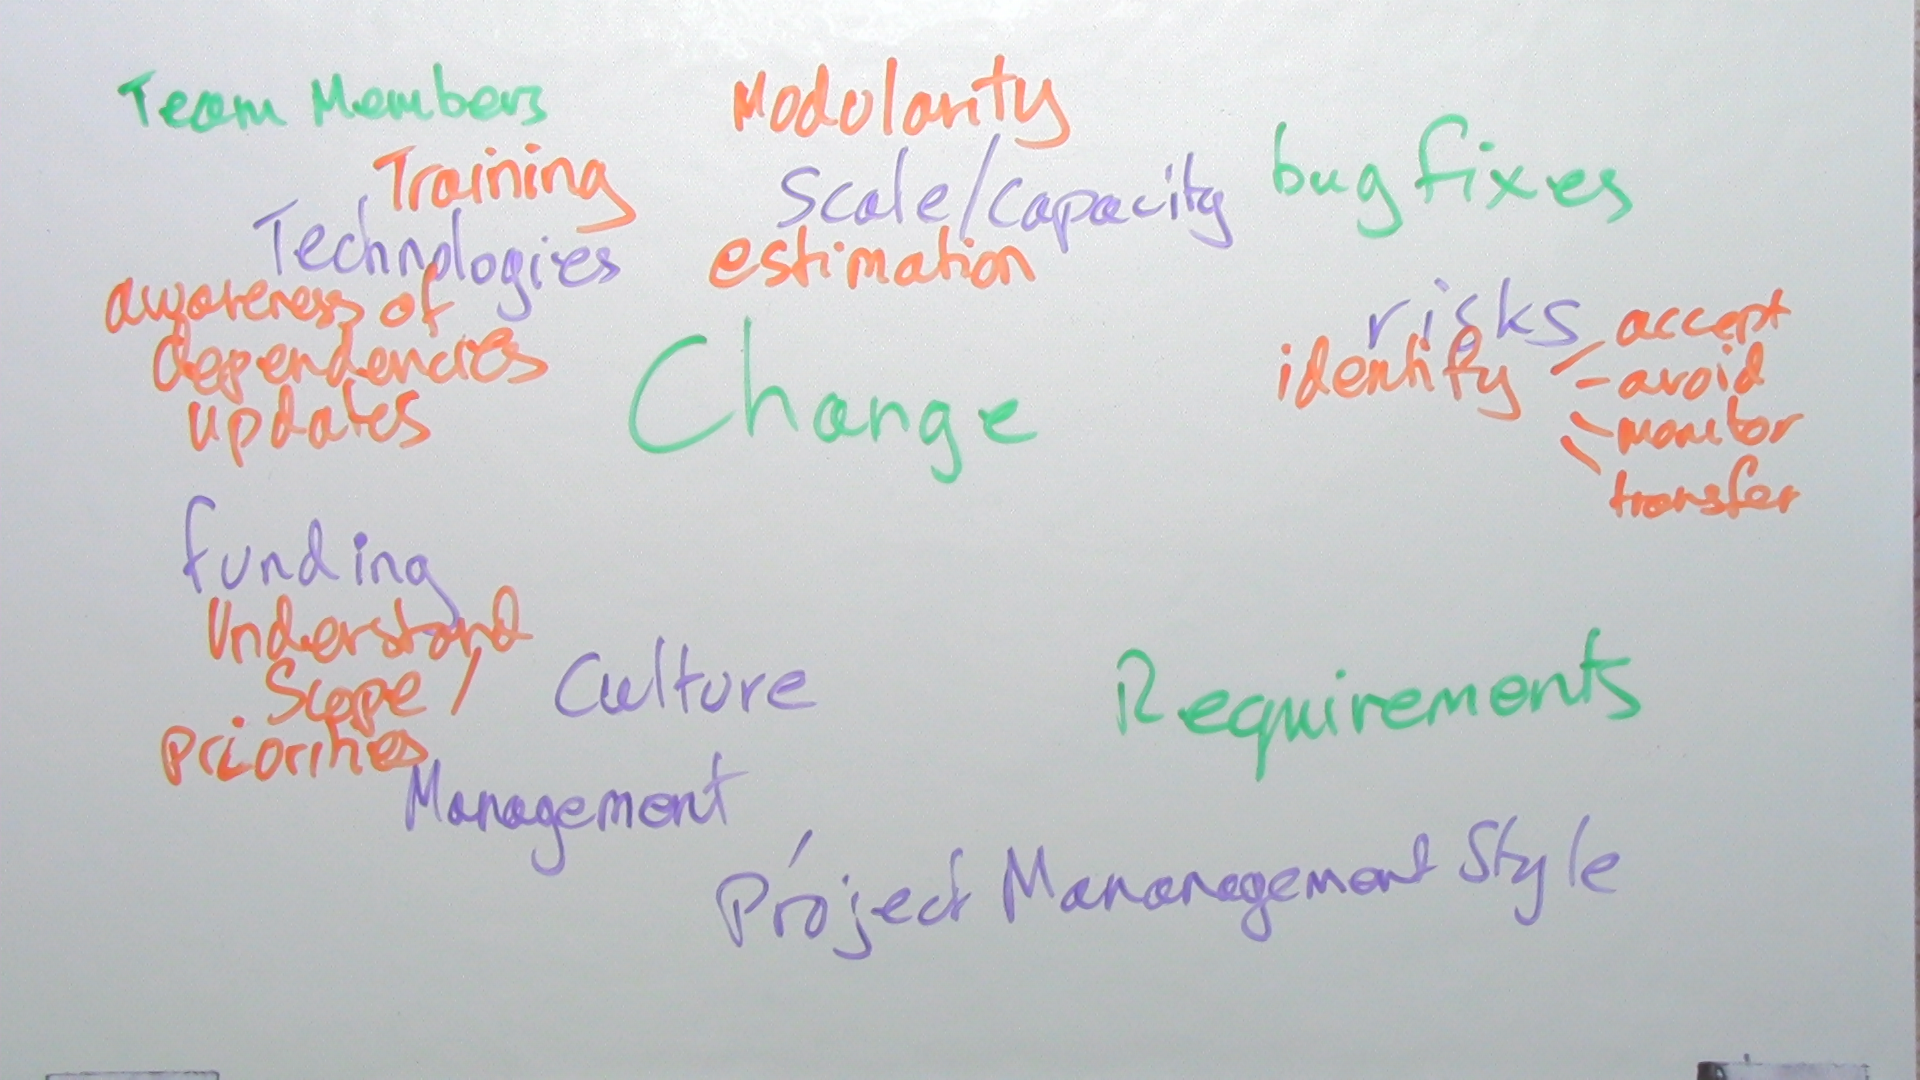 Team Members
Training
Technologies
awareness of
dependencies
updates
Modularity
Scale/capacity
estimation
bug fixes
risks
identify
accept
avoid
monitor
transfer
Change
funding
Understand
Scope/
priorities
Culture
Management
Requirements
Project Mananagement Style